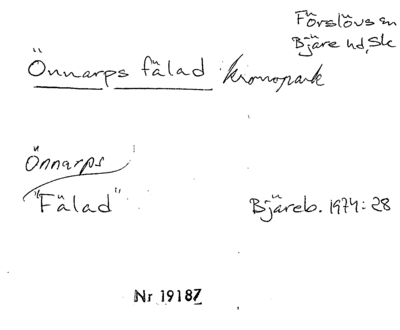 Förslövs sn
Bjäre hd, Sk
Önnarps fälad kronopark
Önnarps
"Fälad"
Bjäreb. 1974: 28
Nr 19187